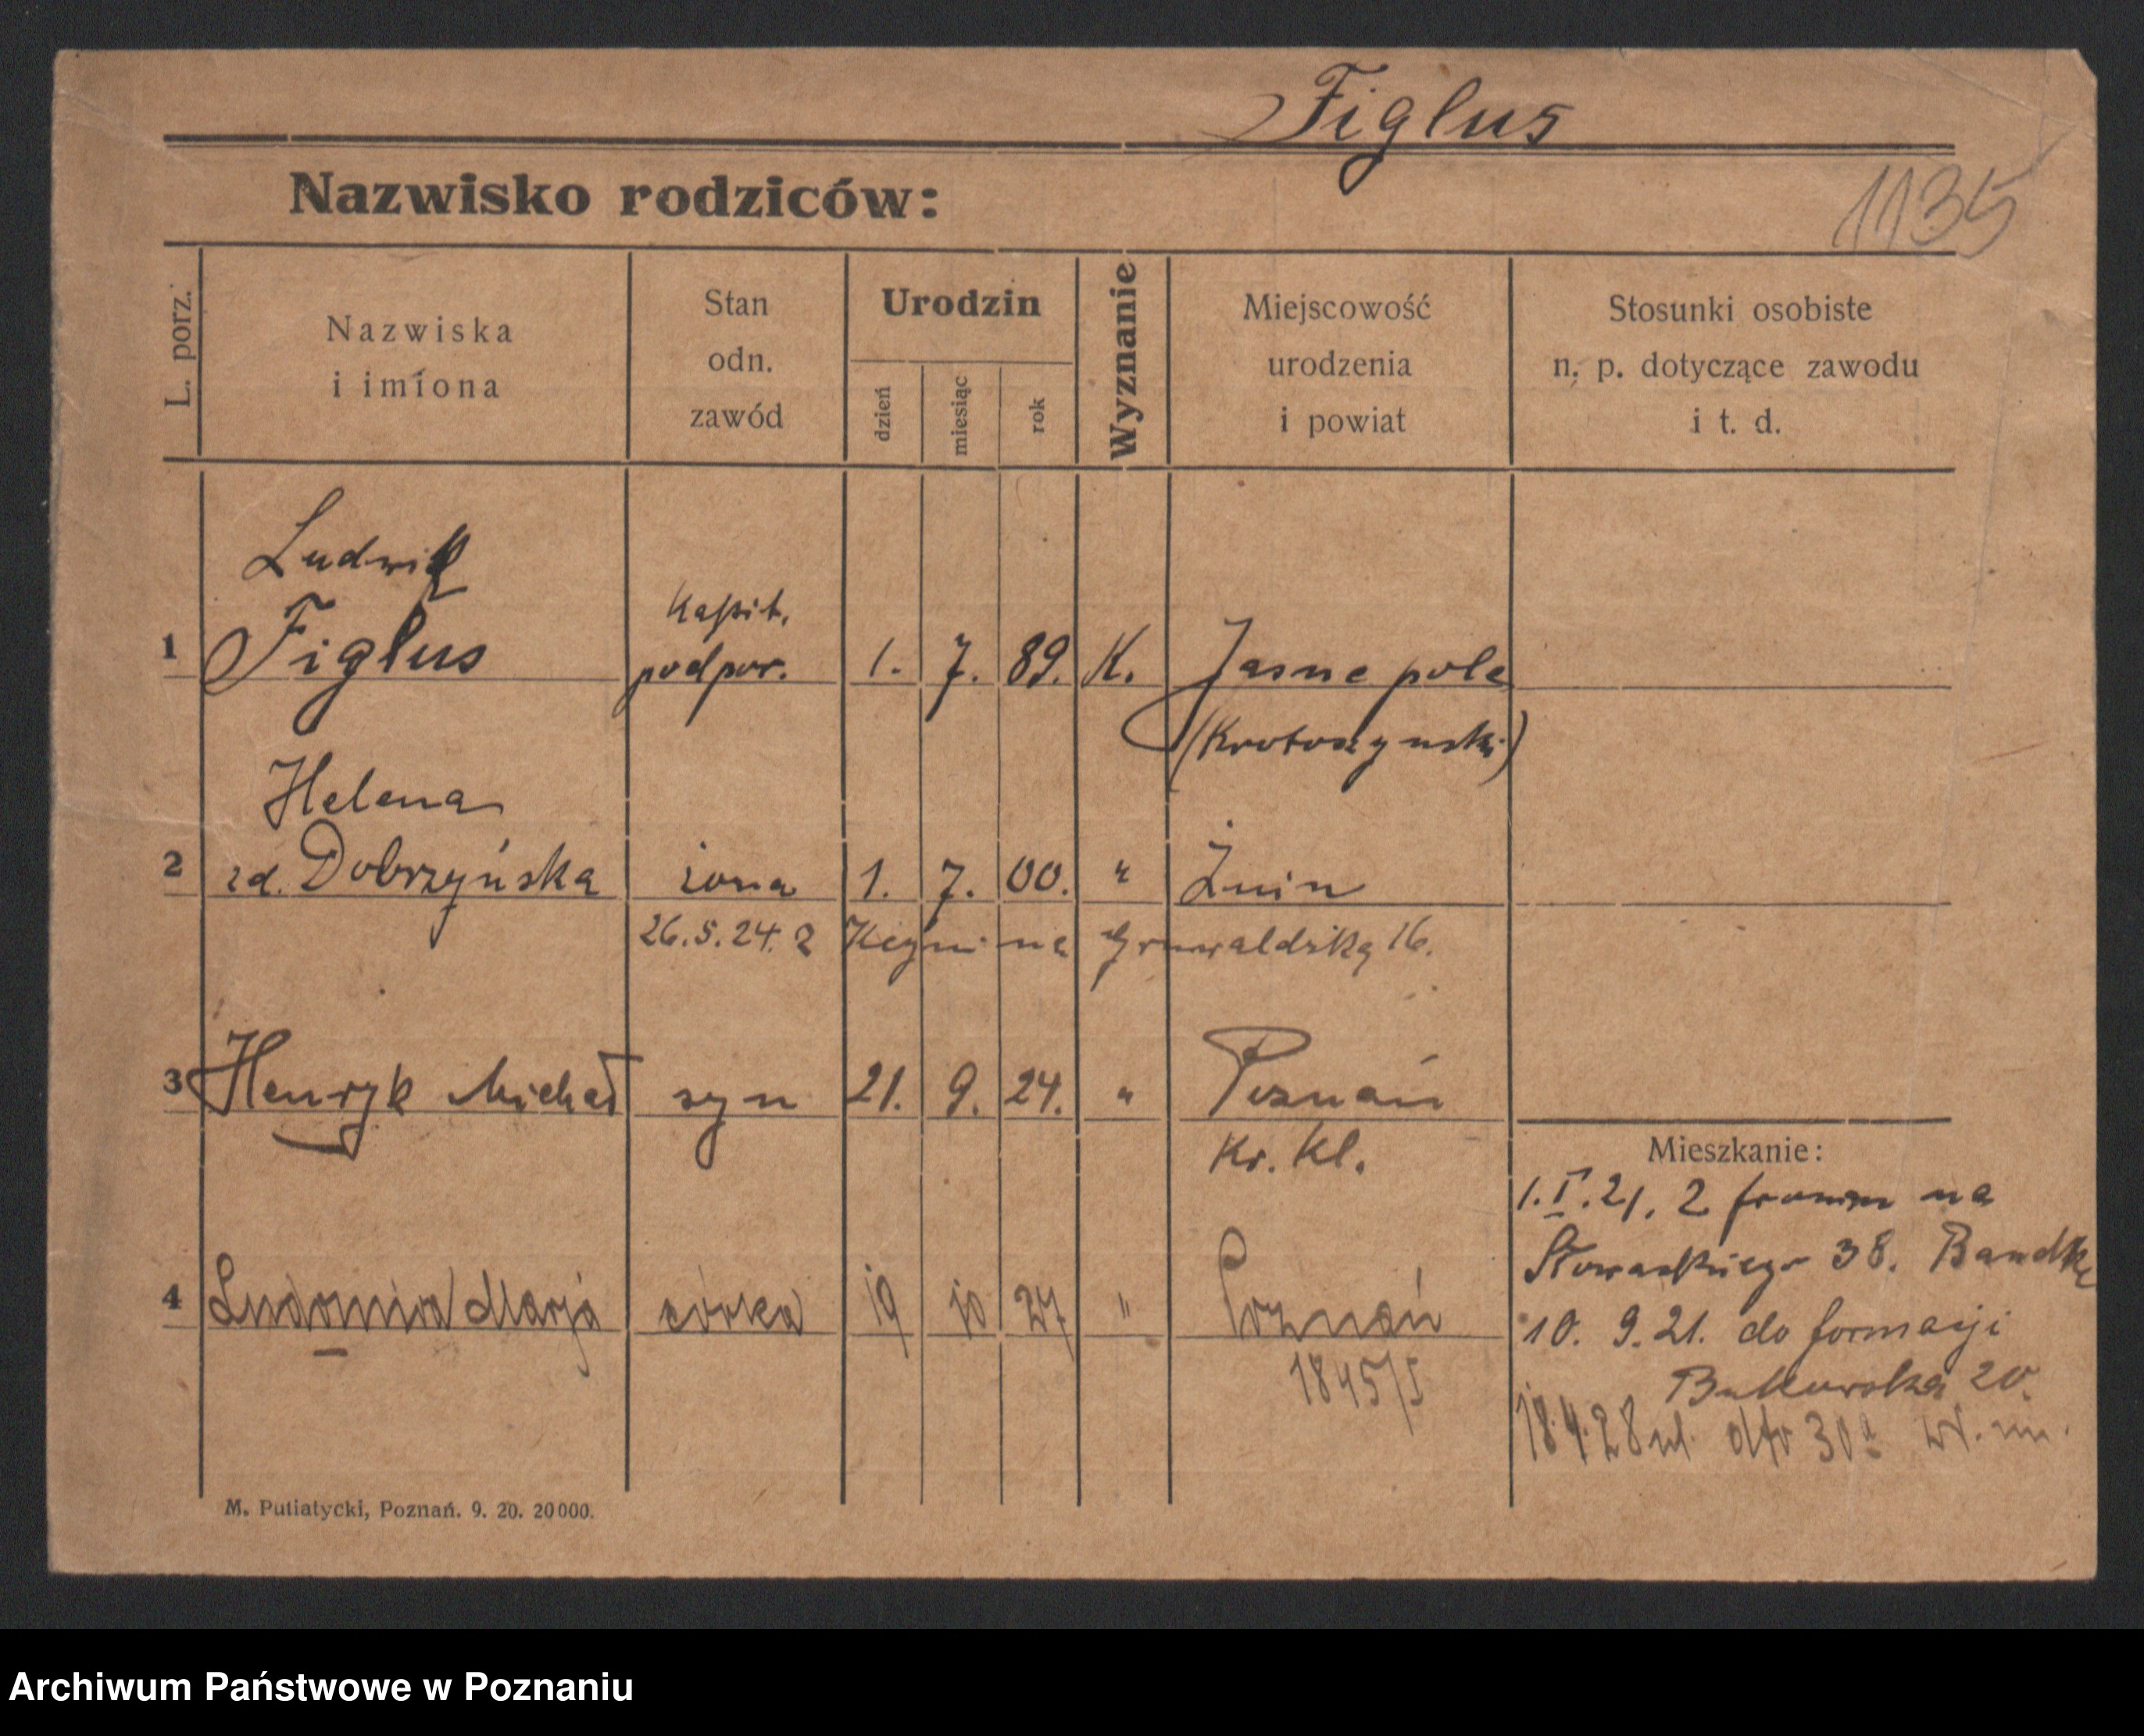 Figlus
Nazwisko rodziców:
1135
L. porz.
Nazwiska
i imiona
Stan
odn.
zawód
Urodzin
dzień
miesiąc
rok
Wyznanie
Miejscowość
urodzenia
i powiat
Stosunki osobiste
n. p. dotyczące zawodu
i t. d.
Ludwik
Kapit.
1 Figlus podpor. 1. 7. 89. K. Jasne pole
(Krotoszynski)
Helena
2 zd. Dobrzyńska żona 1. 7. 00. " Żnin
26.5.24. z Kcyni na Grunwaldzką 16.
3 Henryk Michał syn 21. 9. 24. " Poznań
Kr. Kl.
Mieszkanie:
1.I.21. 2 from na
Słowackiego 38. Bandke
4 Ludomira Marja córka 19 10 27 " Poznań
10. 9.21. do formacji
1845/5
Bukowska 20.
18.4.28 ul. 30a
M. Putiatycki, Poznań. 9. 20. 20000.
Archiwum Państwowe w Poznaniu